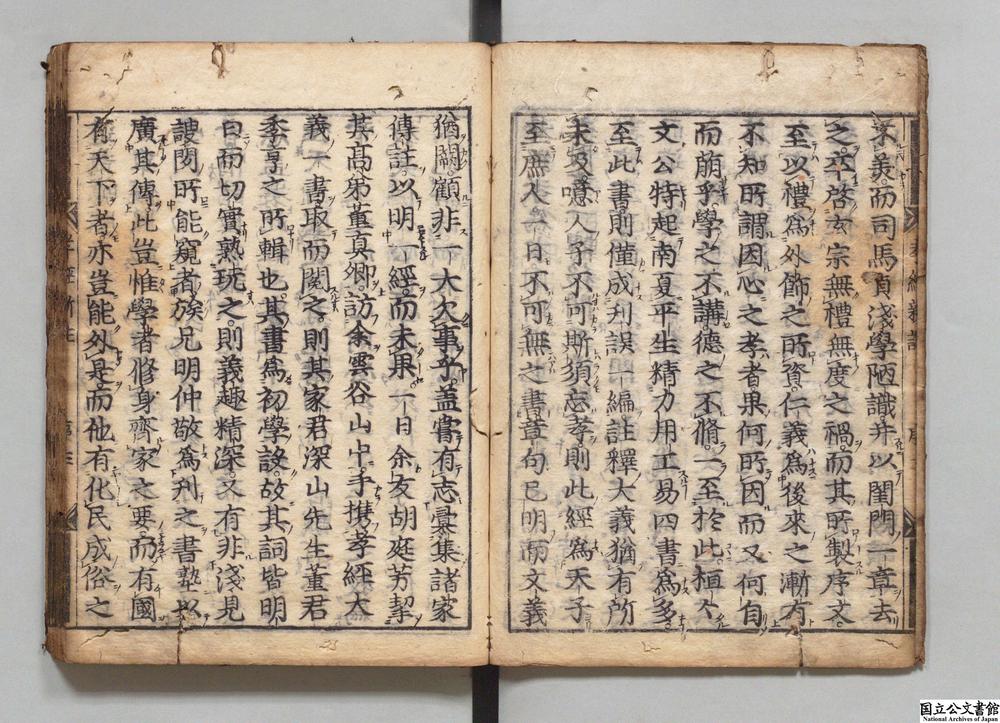 不義而司馬貞淺學陋識并以閨門一章去
之卒啓玄宗無禮無度之禍而其所製序文
至以禮爲外飾之所資仁義爲後來之漸有
不知所謂因心之孝者果何所因而又何自
而萠乎學之不講德之不脩一至於此桓桓
文公特起南夏平生精力用工易四書爲多
至此書則僅成刋誤一編註釋大義猶有所
未及噫人子不可斯須忘孝則此經爲天子
至庶人一日不可無之書章句已明而文義
猶闕顧非一大欠事乎蓋嘗有志彙集諸家
傳註以明一經而未果一日余友胡庭芳挈
其高弟董真卿訪余雲谷山中手携孝經大
義一書取而閱之則其家君深山先生董君
季亨之所輯也其書爲初學設故其詞皆明
白而切實熟玩之則義趣精深又有非淺見
謏聞所能窺者族兄明仲敬爲刋之書塾以
廣其傳此豈惟學者修身齊家之要而有國
有天下者亦豈能外是而他有化民成俗之
国立公文書館
National Archives of Japan